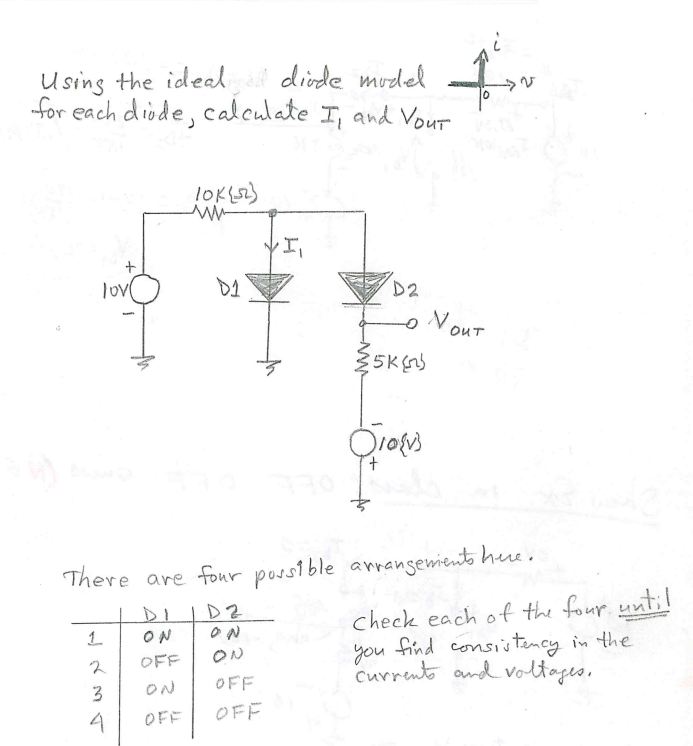 Using the ideal diode model
i
v
0
for each diode, calculate I₁ and VOUT
10K{Ω}
I₁
+
10V
-
D1
D2
VOUT
5K{Ω}
-
10{V}
+
There are four possible arrangements here.
D1 D2
1 ON ON
2 OFF ON
3 ON OFF
4 OFF OFF
Check each of the four until
you find consistency in the
currents and voltages.